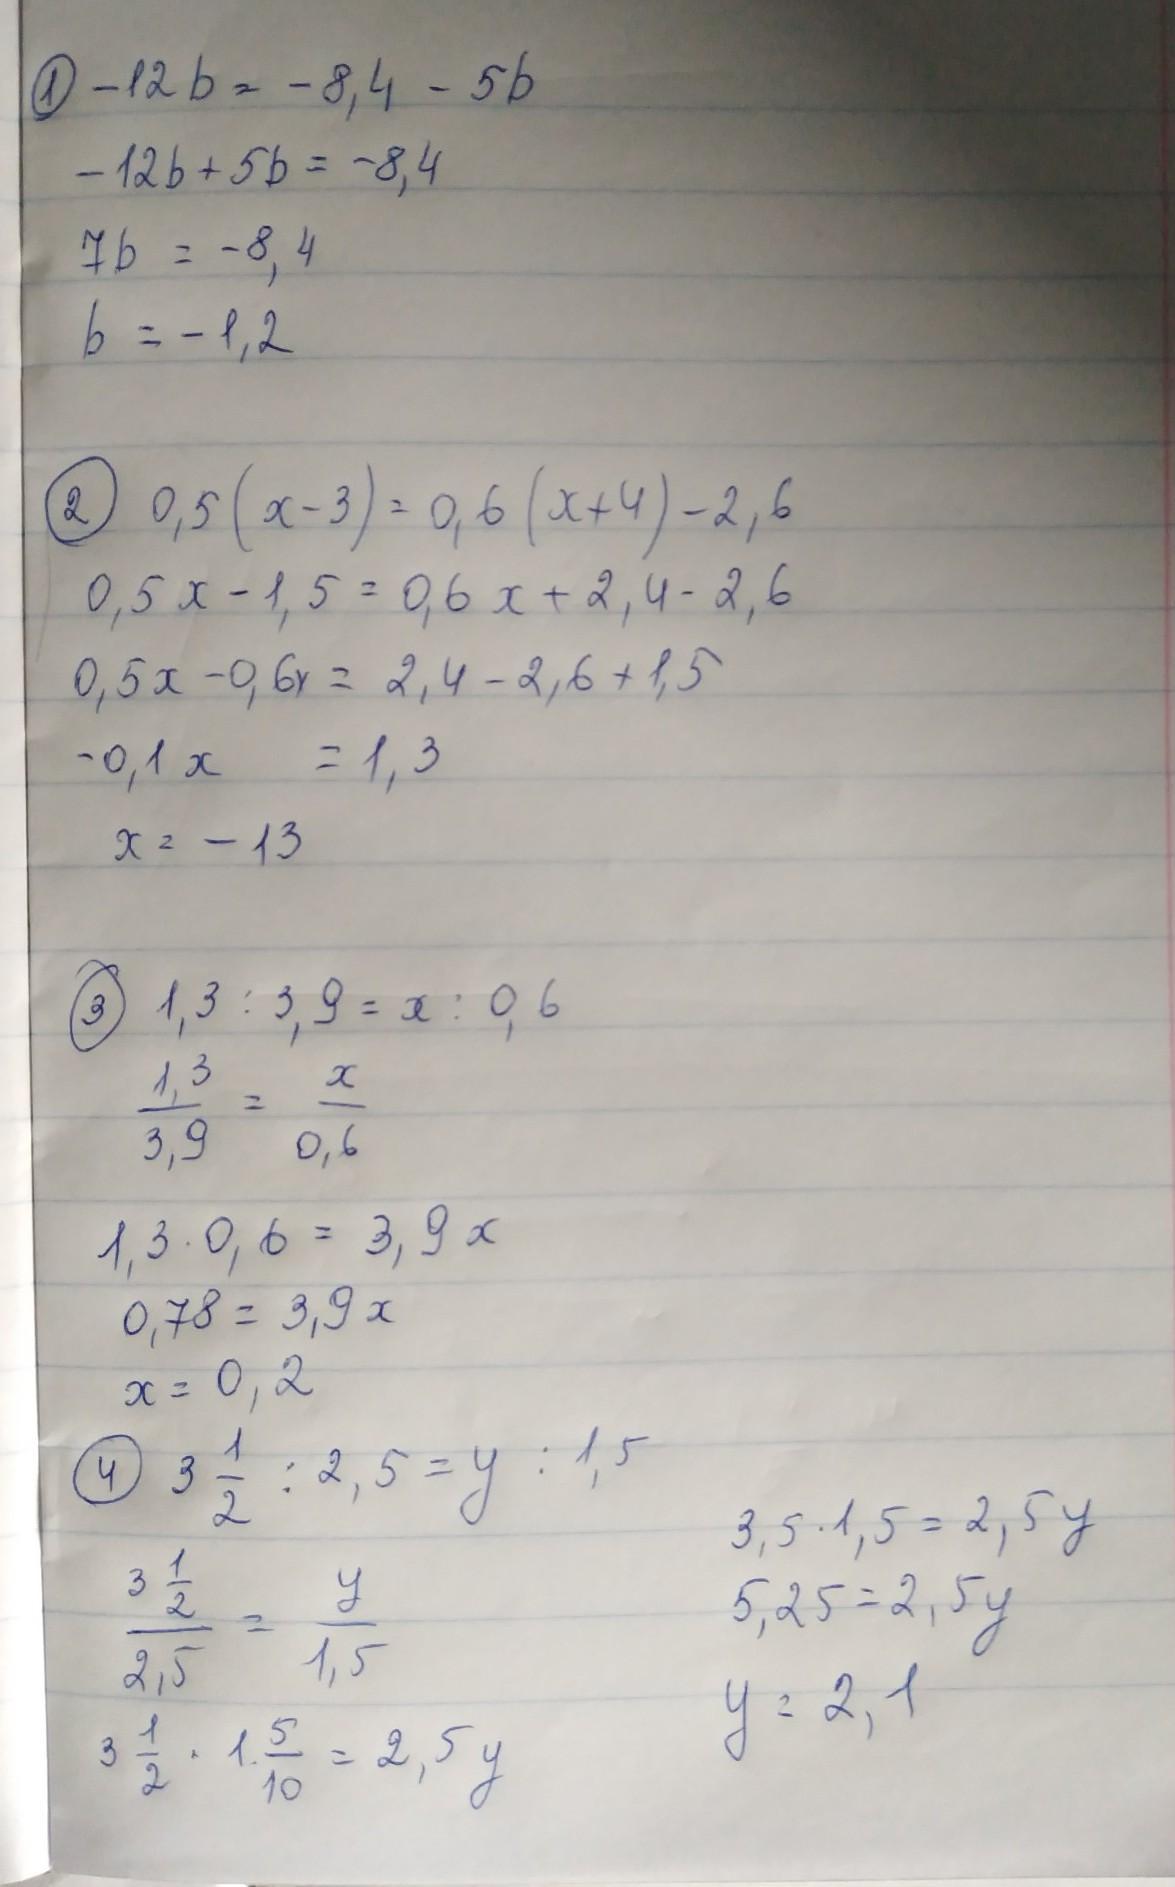 ① -12b = -8,4 - 5b
-12b + 5b = -8,4
7b = -8,4
b = -1,2
② 0,5(x-3) = 0,6(x+4) - 2,6
0,5x - 1,5 = 0,6x + 2,4 - 2,6
0,5x - 0,6x = 2,4 - 2,6 + 1,5
-0,1x = 1,3
x = -13
③ 1,3 : 3,9 = x : 0,6
1,3/3,9 = x/0,6
1,3 · 0,6 = 3,9x
0,78 = 3,9x
x = 0,2
④ 3 1/2 : 2,5 = y : 1,5
3 1/2 / 2,5 = y/1,5
3 1/2 · 1. 5/10 = 2,5y
3,5 · 1,5 = 2,5y
5,25 = 2,5y
y = 2,1